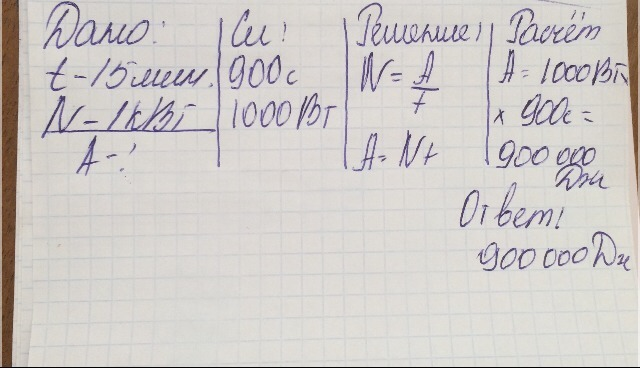 Дано:
t - 15 мин.
N - 1 кВт
A - ?
Си:
900с
1000 Вт
Решение:
N = A/t
A = Nt
Расчёт
A = 1000 Вт
x 900с =
900 000
Дж
Ответ:
900 000 Дж